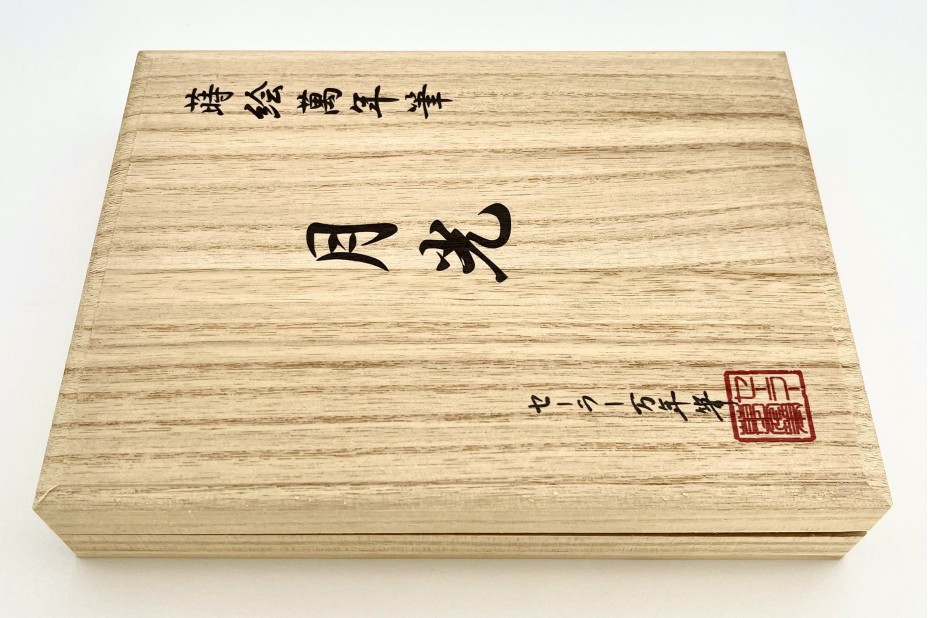 蒔絵萬年筆
月光
セーラー万年筆